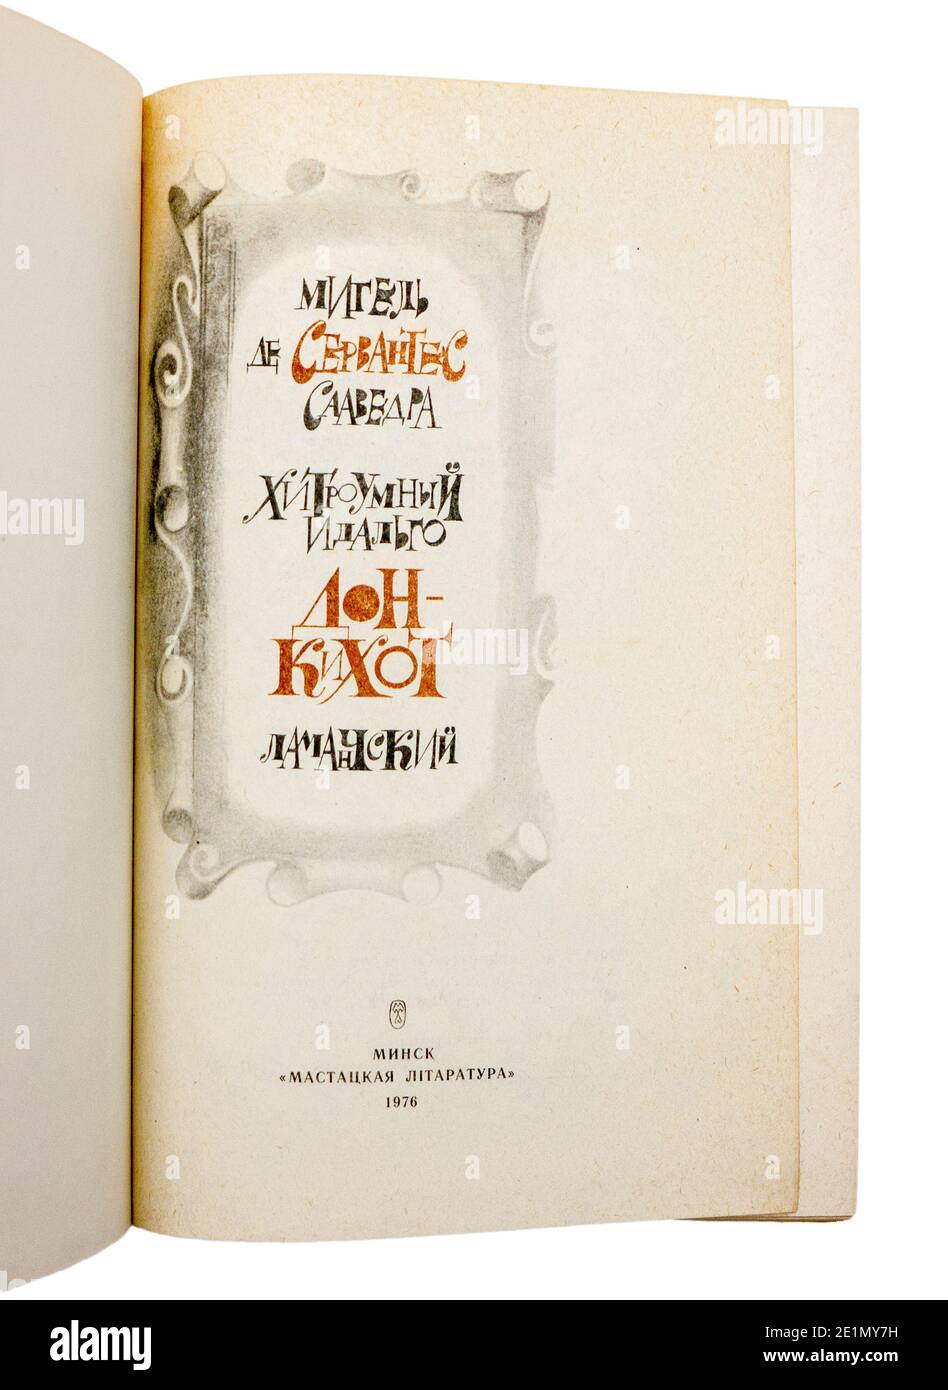 Мигель
де Сервантес
Сааведра
Хитроумный
идальго
Дон-
Кихот
Ламанчский
МИНСК
«МАСТАЦКАЯ ЛІТАРАТУРА»
1976
alamy
Image ID: 2E1MY7H
www.alamy.com